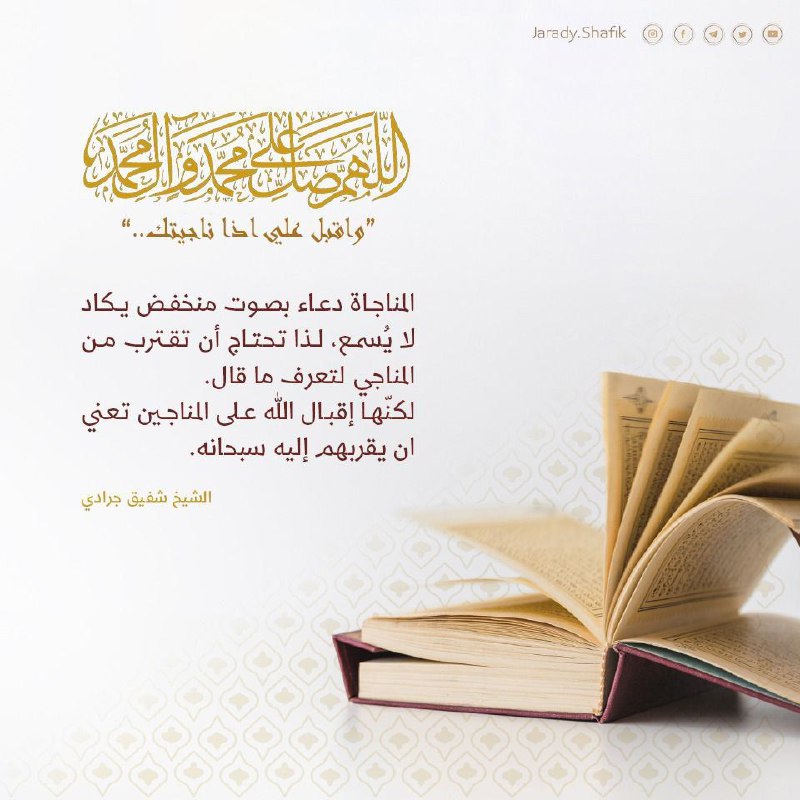 Jarady.Shafik
اللهم صل على محمد وآل محمد
”واقبل علي اذا ناجيتك..“
المناجاة دعاء بصوت منخفض يكاد
لا يُسمع، لذا تحتاج أن تقترب من
المناجي لتعرف ما قال.
لكنّها إقبال الله على المناجين تعني
ان يقربهم إليه سبحانه.
الشيخ شفيق جرادي